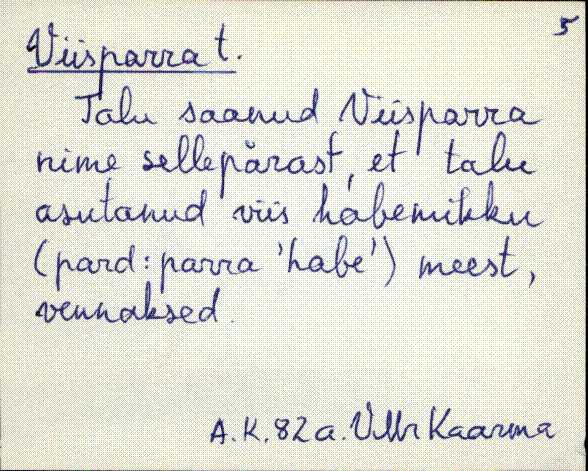 5
Viisparra t.
Talu saanud Viisparra
nime sellepärast, et talu
asutanud viis habemikku
(pard : parra 'habe') meest,
vennaksed.
A.K. 82 a. Kaarma